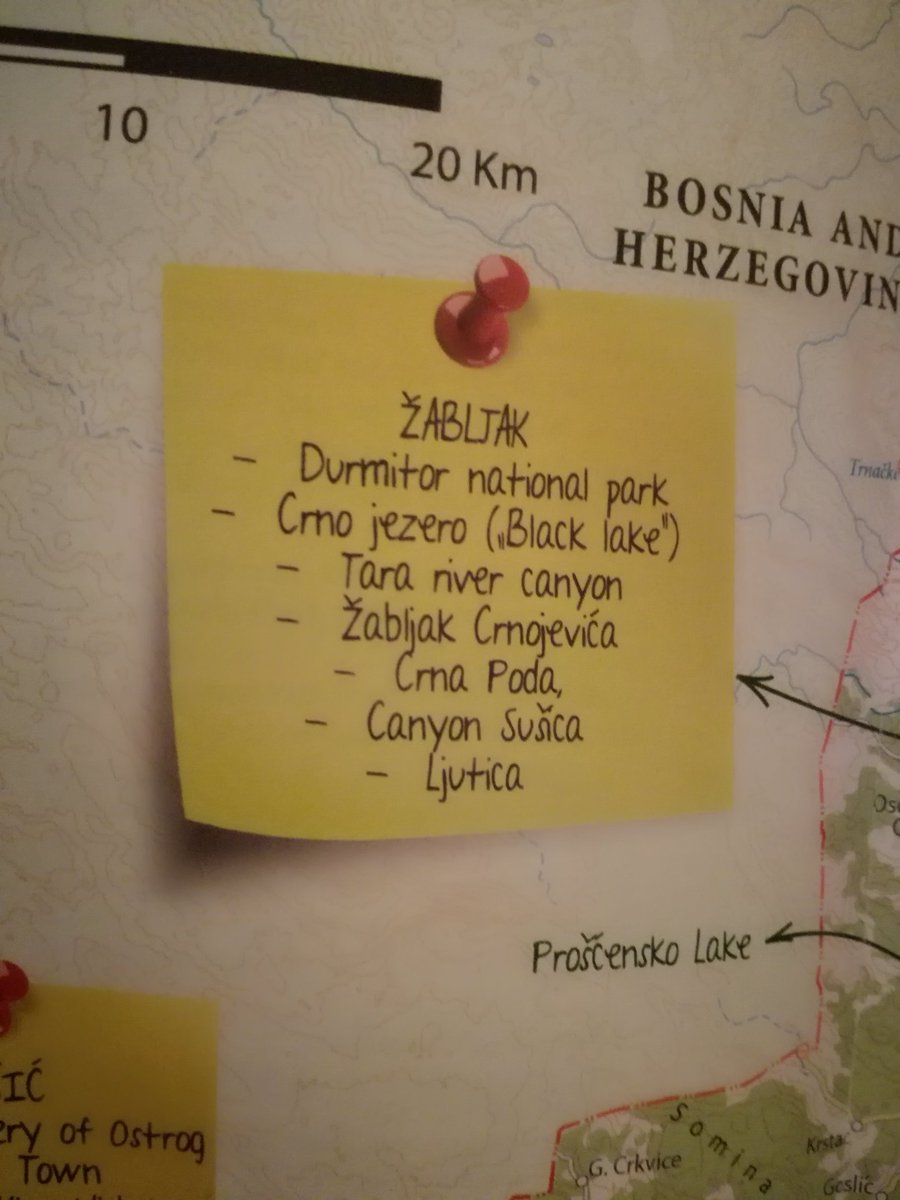 10
20 Km
BOSNIA AND
HERZEGOVIN
ŽABLJAK
- Durmitor national park
- Crno jezero („Black lake")
- Tara river canyon
- Žabljak Crnojevića
- Crna Poda,
- Canyon Sušica
- Ljutica
Trnačk
Os
Prošćensko Lake
IĆ
ery of Ostrog
Town
Somina
G. Crkvice
Krsta